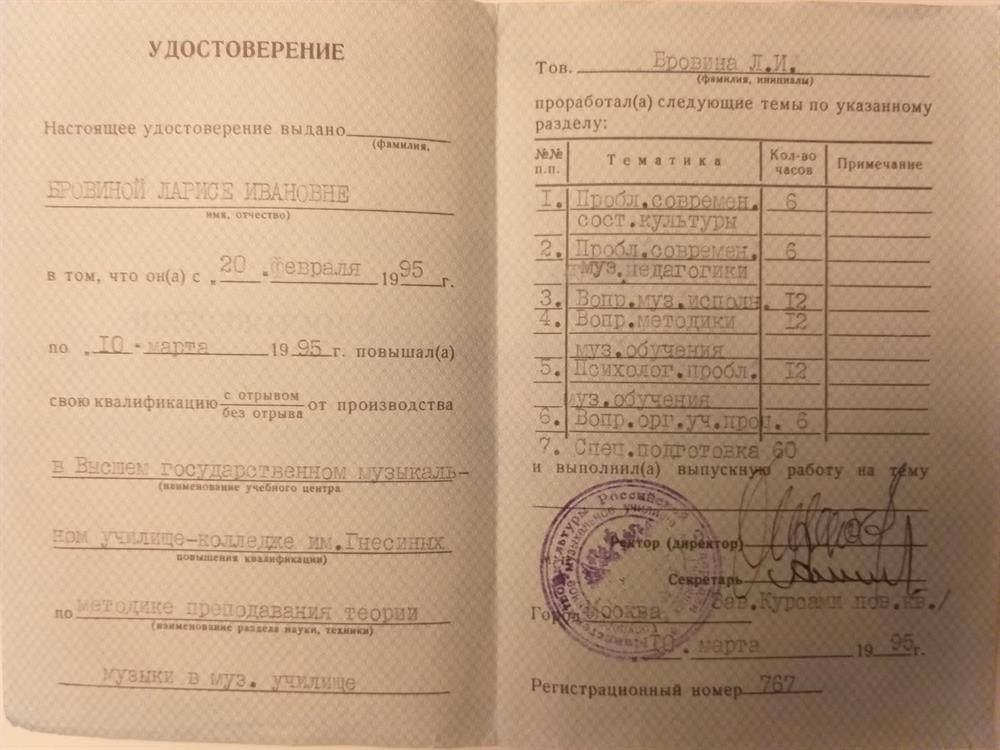 УДОСТОВЕРЕНИЕ
Настоящее удостоверение выдано
(фамилия,
БРОВИНОЙ ЛАРИСЕ ИВАНОВНЕ
имя, отчество)
в том, что он(а) с „20„ февраля 1995 г.
по „10 - марта 1995 г. повышал(а)
свою квалификацию с отрывом от производства
без отрыва
в Высшем государственном музыкаль-
(наименование учебного центра
ном училище-колледже им.Гнесиных
повышения квалификации)
по методике преподавания теории
(наименование раздела науки, техники)
музыки в муз. училище
Тов. Бровина Л.И.
(фамилия, инициалы)
проработал(а) следующие темы по указанному
разделу:
№№ п.п. Тематика Кол-во часов Примечание
1. Пробл.современ. 6
сост.культуры
2. Пробл.современ. 6
муз.педагогики
3. Вопр.муз.исполн. 12
4. Вопр.методики 12
муз.обучения
5. Психолог.пробл. 12
муз.обучения
6. Вопр.орг.уч.проц. 6
7. Спец.подготовка 60
и выполнил(а) выпускную работу на тему
Ректор (директор)
Секретарь
Зав.Курсами пов.кв./
Город Москва
„10„ марта 1995г.
Регистрационный номер 767